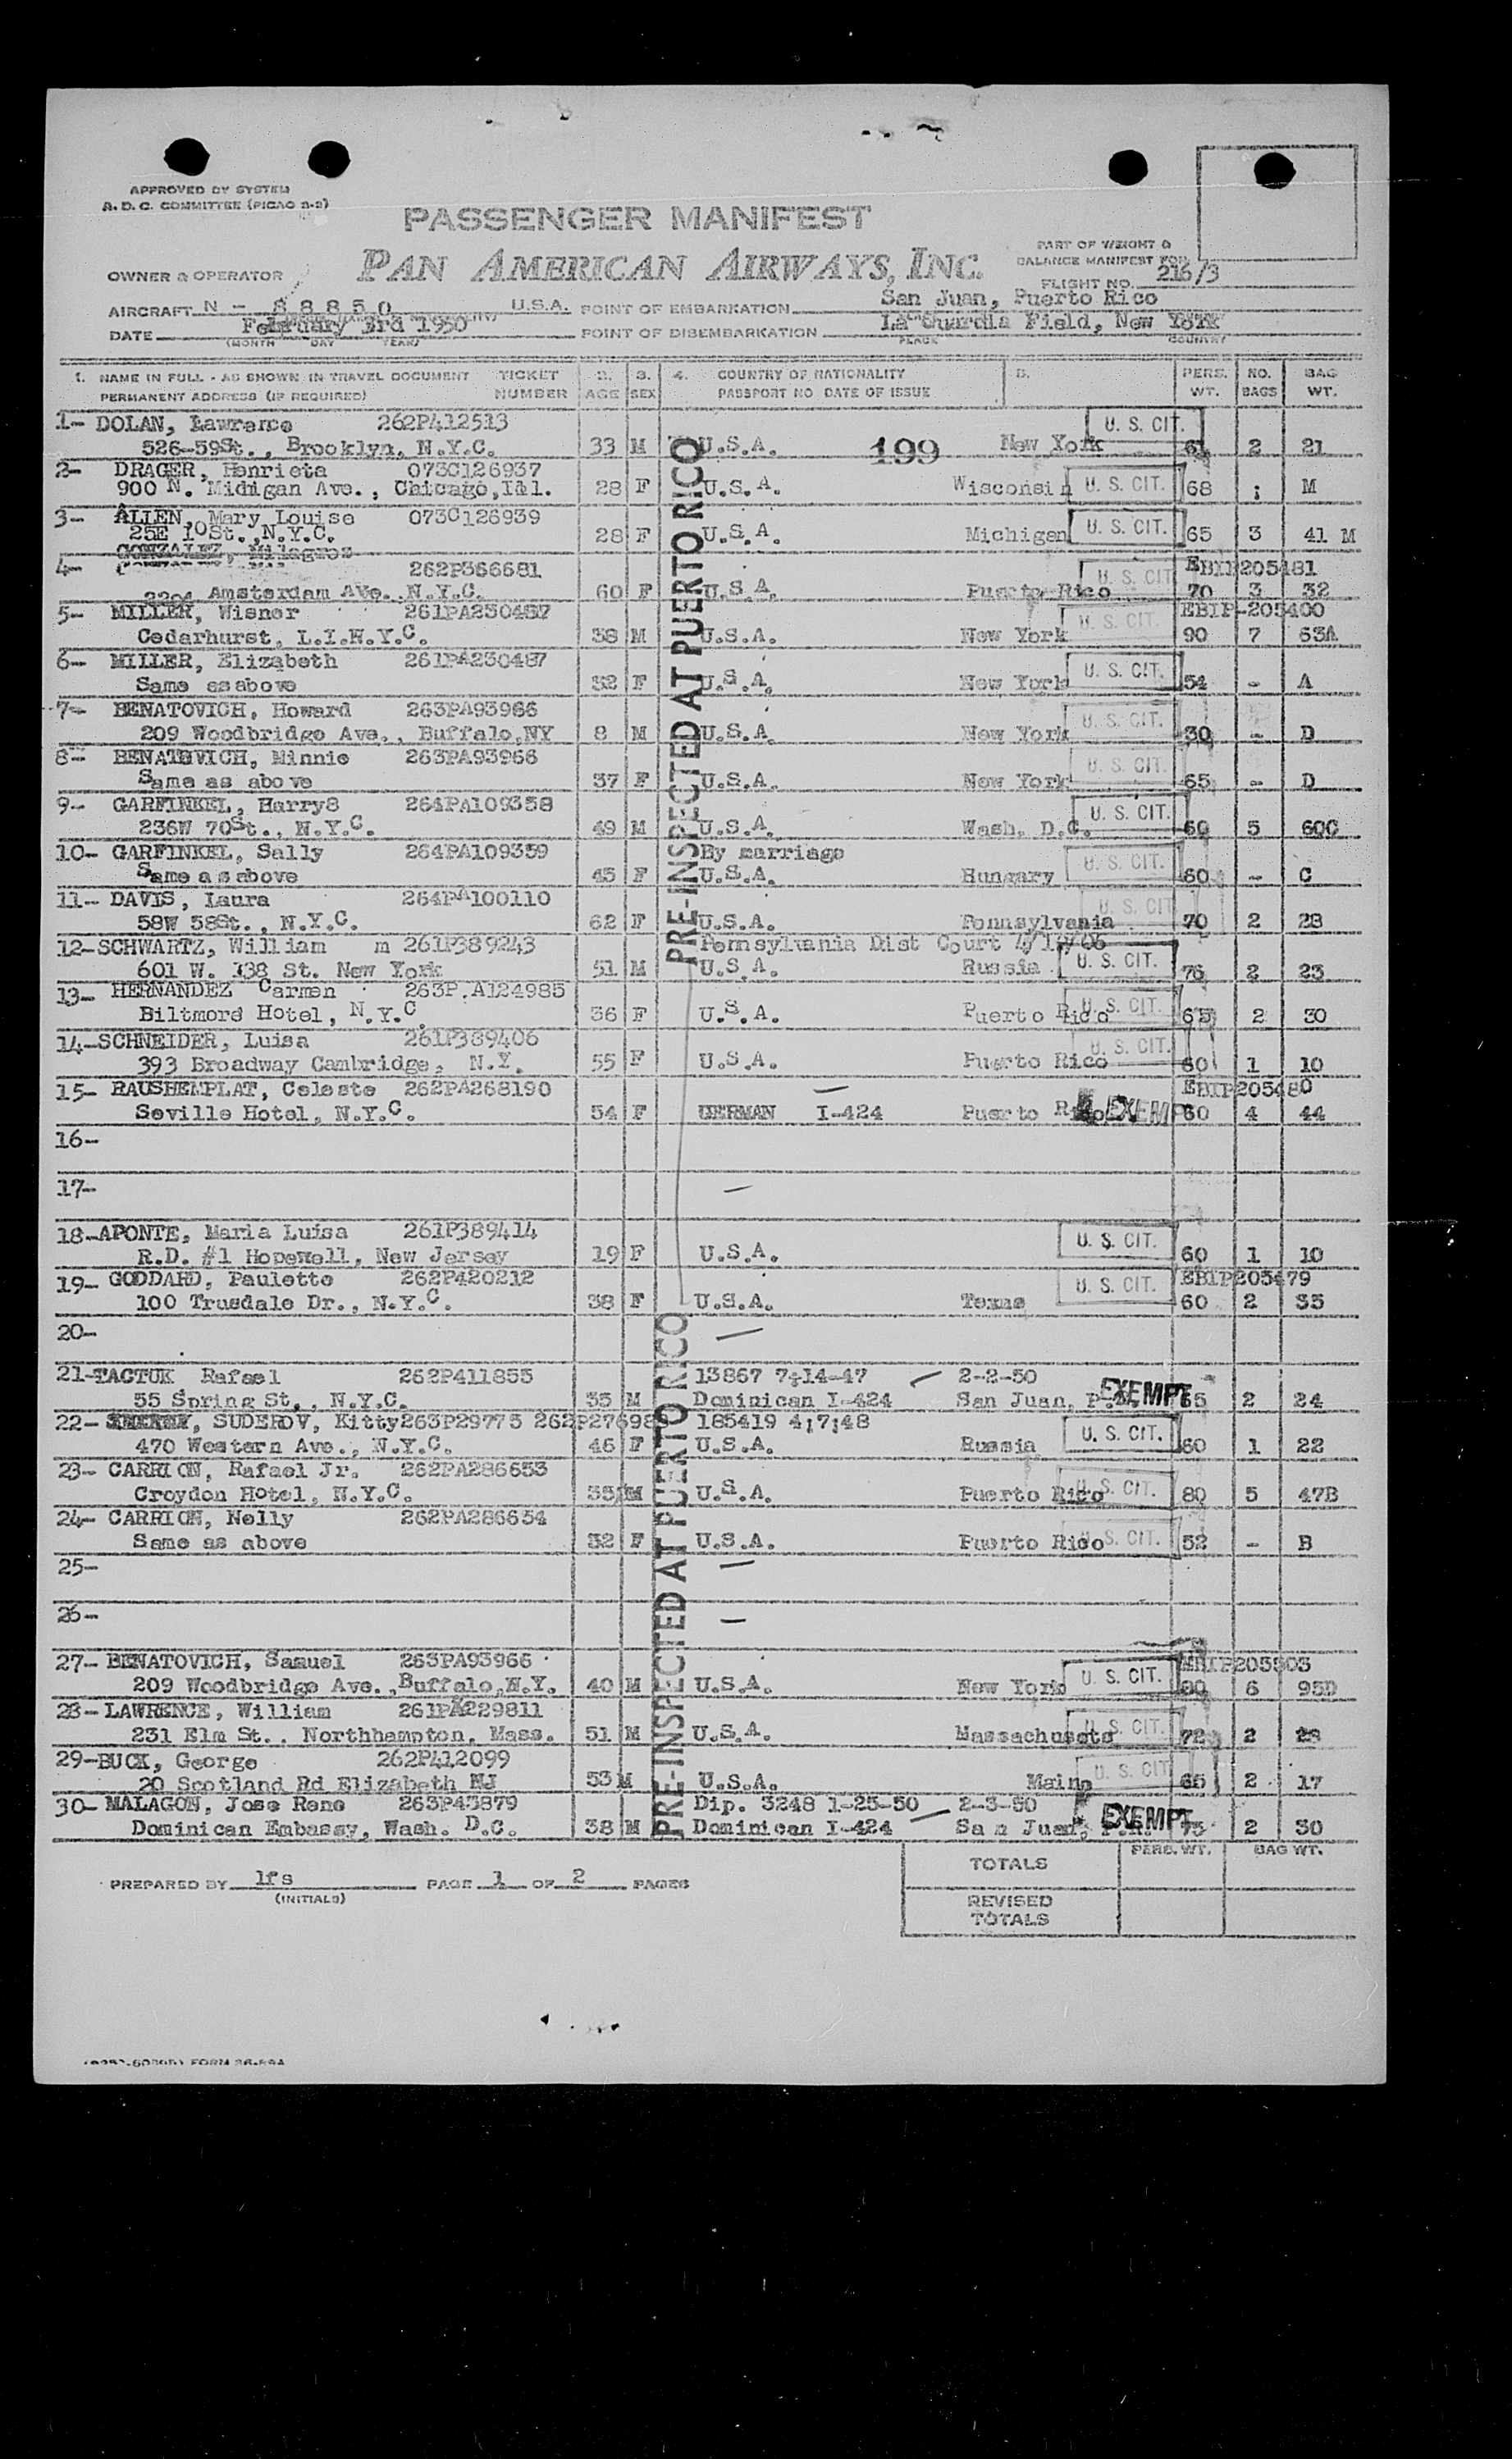 APPROVED BY SYSTEM
A. D. C. COMMITTEE (PICAO 2-2)
PASSENGER MANIFEST
PAN AMERICAN AIRWAYS, INC.
PART OF WEIGHT &
BALANCE MANIFEST FOR
FLIGHT NO. 216/3
OWNER & OPERATOR
AIRCRAFT N - 88850 U.S.A. POINT OF EMBARKATION San Juan, Puerto Rico
DATE February 3rd 1950 POINT OF DISEMBARKATION La Guardia Field, New York
(MONTH DAY YEAR) PLACE COUNTRY
1. NAME IN FULL - AS SHOWN IN TRAVEL DOCUMENT TICKET 2. 3. 4. COUNTRY OF NATIONALITY 5. PERS. NO. BAG
PERMANENT ADDRESS (IF REQUIRED) NUMBER AGE SEX PASSPORT NO DATE OF ISSUE WT. BAGS WT.
1- DOLAN, Lawrence 262P412513 U. S. CIT.
526-59St., Brooklyn, N.Y.C. 33 M U.S.A. 199 New York 61 2 21
2- DRAGER, Henrieta 073C126937
900 N. Midigan Ave., Chicago,Ill. 28 F U.S.A. Wisconsin U. S. CIT. 68 ; M
3- ALLEN, Mary Louise 073C126939
25E 10St.,N.Y.C. 28 F U.S.A. Michigan U. S. CIT. 65 3 41 M
GONZALEZ, Milagros
4- 262P366681 EBIP205481
Amsterdam Ave. N.Y.C. 60 F U.S.A. Puerto Rico U. S. CIT 70 3 32
5- MILLER, Wisner 261PA230487 EBIP-205400
Cedarhurst, L.I.N.Y.C. 38 M U.S.A. New York U. S. CIT. 90 7 63A
6- MILLER, Elizabeth 261PA230487
Same as above 32 F U.S.A. New York U. S. CIT. 54 - A
7- BENATOVICH, Howard 263PA93966
209 Woodbridge Ave., Buffalo,NY 8 M U.S.A. New York U. S. CIT. 30 - D
8- BENATOVICH, Minnie 263PA93966
Same as above 37 F U.S.A. New York U. S. CIT. 65 - D
9- GARFINKEL, Harry8 264PA109358
236W 70St., N.Y.C. 49 M U.S.A. Wash. D.C. U. S. CIT. 60 5 60C
10- GARFINKEL, Sally 264PA109359 By marriage
Same as above 45 F U.S.A. Hungary U. S. CIT. 60 - C
11- DAVIS, Laura 264PA100110
58W 58St., N.Y.C. 62 F U.S.A. Pennsylvania U. S. CIT 70 2 28
12-SCHWARTZ, William m 261P389243 Pernsylvania Dist Court
601 W. 138 St. New York 51 M U.S.A. Russia U. S. CIT. 76 2 23
13- HERNANDEZ Carmen 263P.A124985
Biltmord Hotel, N.Y.C. 36 F U.S.A. Puerto Rico U. S. CIT. 65 2 30
14-SCHNEIDER, Luisa 261P389406
393 Broadway Cambridge, N.Y. 55 F U.S.A. Puerto Rico U. S. CIT. 60 1 10
15- RAUSHEMPLAT, Celeste 262PA268190 EBIP205480
Seville Hotel, N.Y.C. 54 F UERMAN I-424 Puerto Rico EXEMP 60 4 44
16-
17-
18-APONTE, Maria Luisa 261P389414
R.D. #1 Hopewell, New Jersey 19 F U.S.A. U. S. CIT. 60 1 10
19- GODDARD, Paulette 262P420212 EBIP205479
100 Trusdale Dr., N.Y.C. 38 F U.S.A. Texas U. S. CIT. 60 2 35
20-
21-TACTUK Rafael 262P411855 13867 7-14-47 2-2-50
55 Spring St., N.Y.C. 35 M Dominican I-424 San Juan, P.R. EXEMPT 65 2 24
22- SUDEROV, Kitty263P29775 262P27698 185419 4;7;48
470 Western Ave., N.Y.C. 46 F U.S.A. Russia U. S. CIT. 60 1 22
23- CARRION, Rafael Jr. 262PA286653
Croydon Hotel, N.Y.C. 35 M U.S.A. Puerto Rico U. S. CIT. 80 5 47B
24- CARRION, Nelly 262PA286654
Same as above 32 F U.S.A. Puerto Rico U. S. CIT. 52 - B
25-
26-
27- BENATOVICH, Samuel 263PA93966 EBIP205503
209 Woodbridge Ave.,Buffalo,N.Y. 40 M U.S.A. New York U. S. CIT. 80 6 95D
28- LAWRENCE, William 261PA229811
231 Elm St., Northhampton, Mass. 51 M U.S.A. Massachusets U. S. CIT. 72 2 28
29-BUCK, George 262P412099
20 Scotland Rd Elizabeth NJ 53 M U.S.A. Maine U. S. CIT 65 2 17
30- MALAGON, Jose Rene 263P43879 Dip. 3248 1-25-50 2-3-50
Dominican Embassy, Wash. D.C. 38 M Dominican I-424 San Juan, P.R. EXEMPT 75 2 30
PRE-INSPECTED AT PUERTO RICO
PRE-INSPECTED AT PUERTO RICO
PERS. WT. BAG WT.
TOTALS
PREPARED BY lfs PAGE 1 OF 2 PAGES
(INITIALS)
REVISED
TOTALS